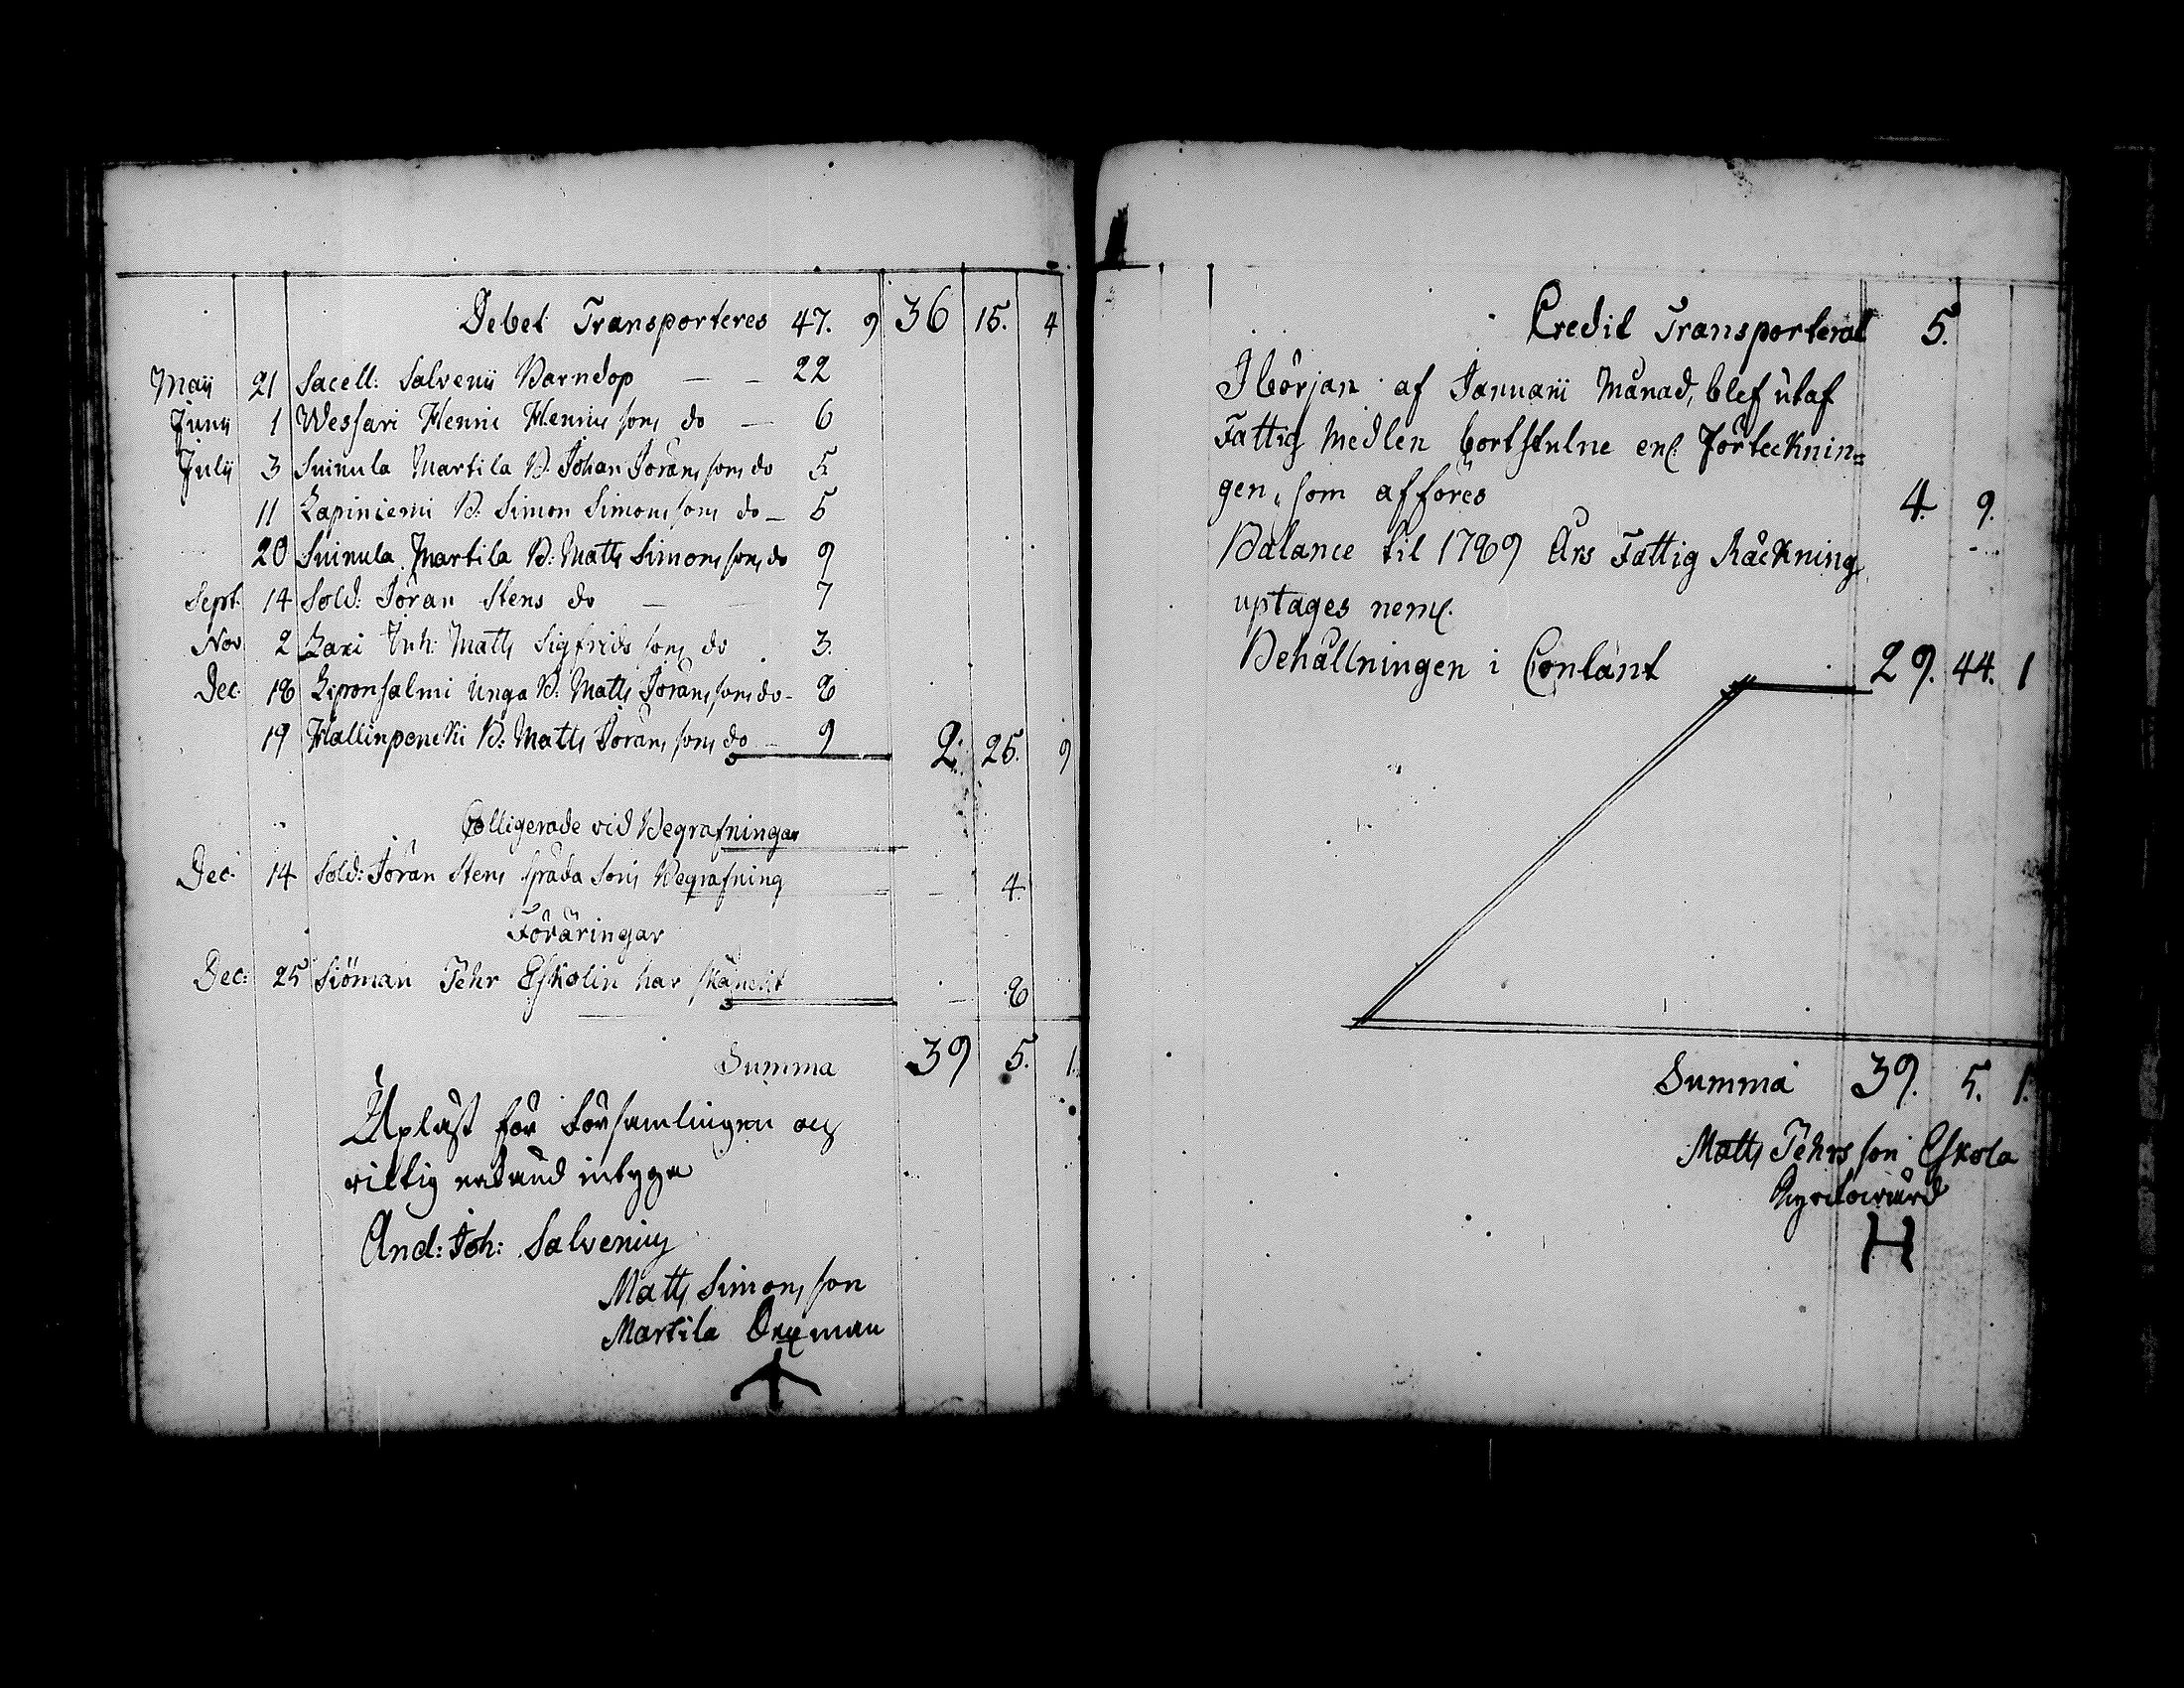 Debet Transporteres 47. 9 36 15. 4
Maij 21 Sacell: Salvenii Barndop — — 22
Junij 1 Wessari Henric Henricssons do — 6
Julij 3 Suinula Martila B: Johan Jöranssons do 5
11 Lapiniemi B: Simon Simonssons do — 5
20 Suinula Martila B: Matts Simonssons do 9
Sept. 14 Sold: Jöran Stens do — 7
Nov 2 Laxi Inh: Matts Sigfridssons do 3.
Dec. 18 Liponsalmi Unga B: Matts Jöranssons do - 8
19 Hallinpenckii B: Matts Jöranssons do — 9 2. 25. 9
Colligerade vid Begrafningar
Dec. 14 Sold: Jöran Stens späda Sons Begrafning — 4.
Föräringar
Dec: 25 Siöman Pehr Eskolin har skänckt — 8
Summa 39 5. 1.
Upläst för Församlingen och
riktig erkänd intyga
And: Joh: Salvenius
Matts Simonsson
Martila Sexman
Credit Transporterat 5.
I början af Januarii Månad, blef utaf
Fattig Medlen bortstulne enl. Förtecknin=
gen, som afföres 4. 9.
Balance til 1789 Års Fattig Räckning
uptages neml.
Behållningen i Contant 29. 44. 1
Summa 39. 5. 1.
Matts Pehrsson Eskola
Kyrckovärd
H